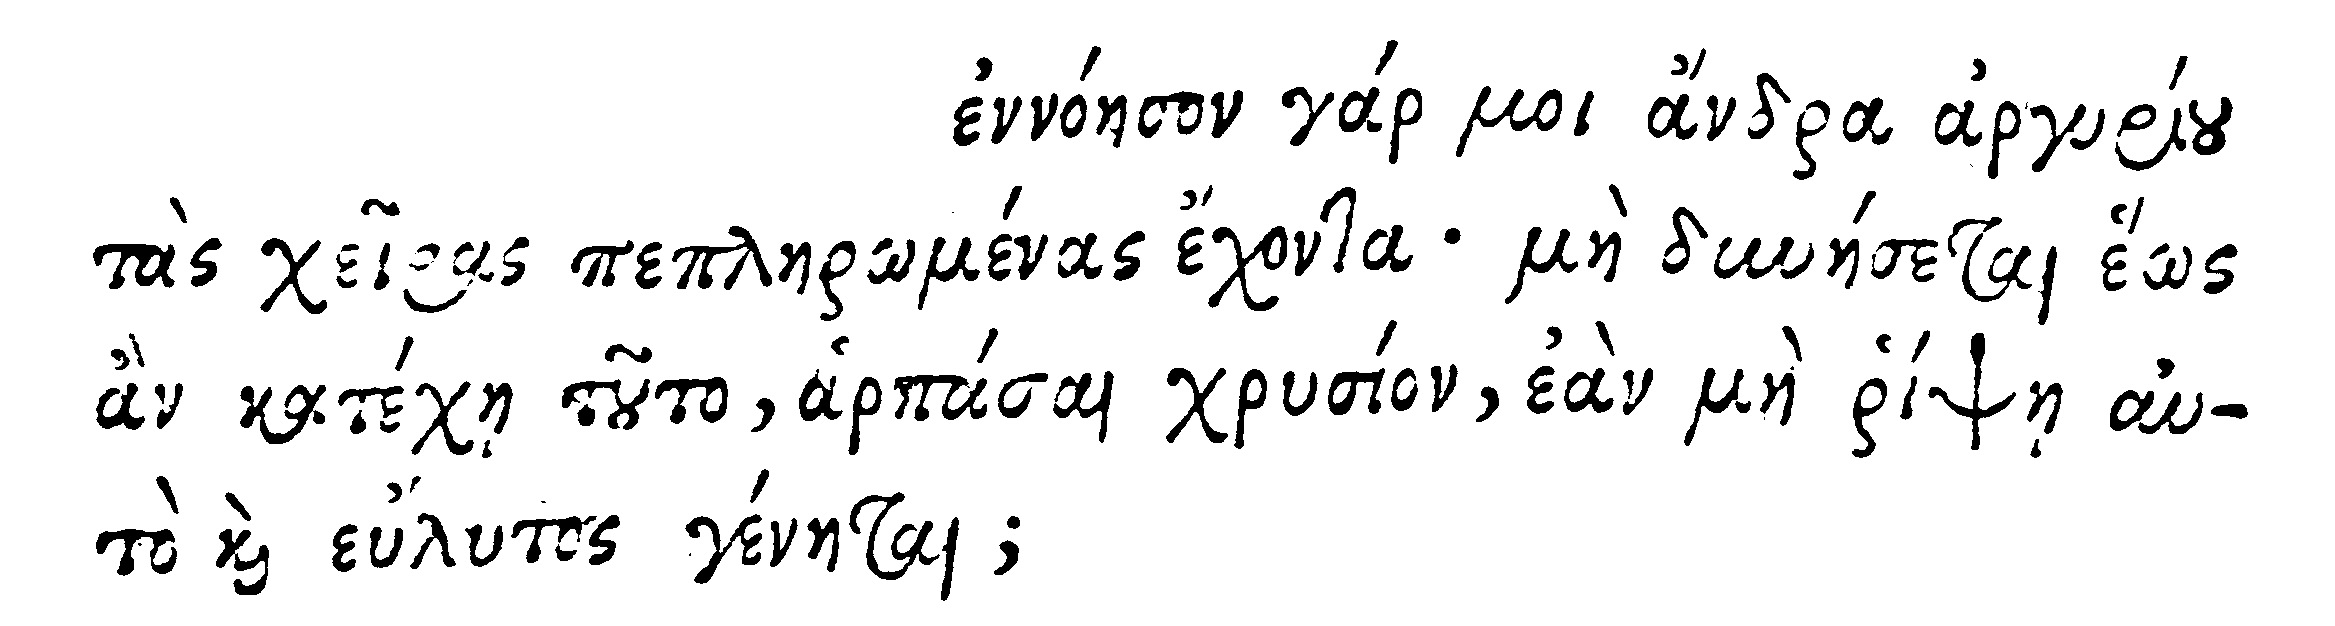 ἐννόησον γάρ μοι ἄνδρα ἀργυρίου
τὰς χεῖρας πεπληρωμένας ἔχοντα· μὴ δυνήσεται ἕως
ἂν κατέχῃ τοῦτο, ἁρπάσαι χρυσίον, ἐὰν μὴ ῥίψῃ αὐ-
τὸ καὶ εὔλυτος γένηται;